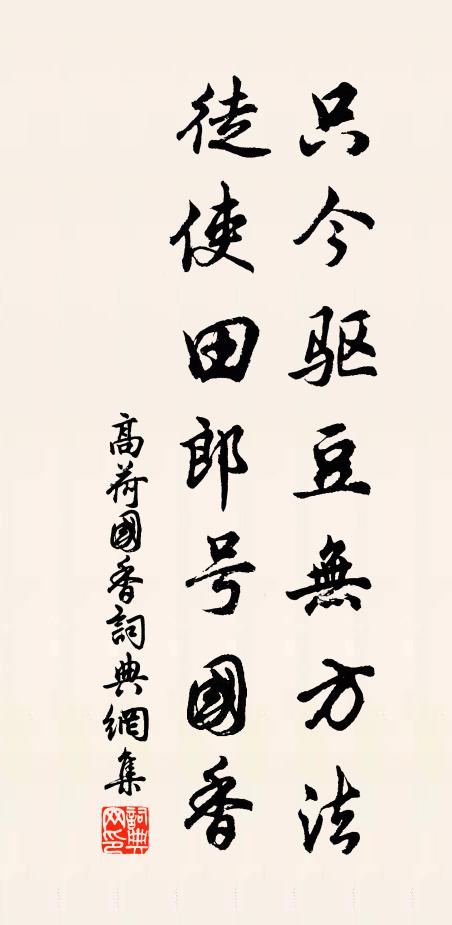 只今驱豆無方法
徒使田郎号國香
高荷國香詞典網集
詞典網印